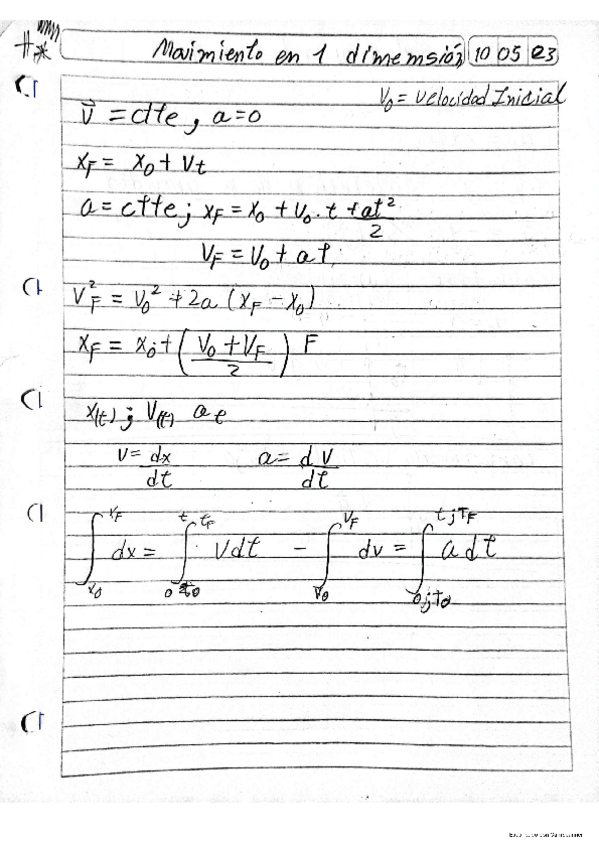 Movimiento en 1 dimemsión 10 05 23
V₀ = Velocidad Inicial
v⃗ = ctte, a=0
x_F = x₀ + Vt
a = ctte; x_F = x₀ + V₀ · t + at²/2
V_F = V₀ + at
V_F² = V₀² + 2a (x_F − x₀)
x_F = x₀ + (V₀ + V_F / 2) F
x(t) ; V(t) a t
v = dx/dt a = dV/dt
∫ dx = ∫ Vdt − ∫ dv = ∫ a dt